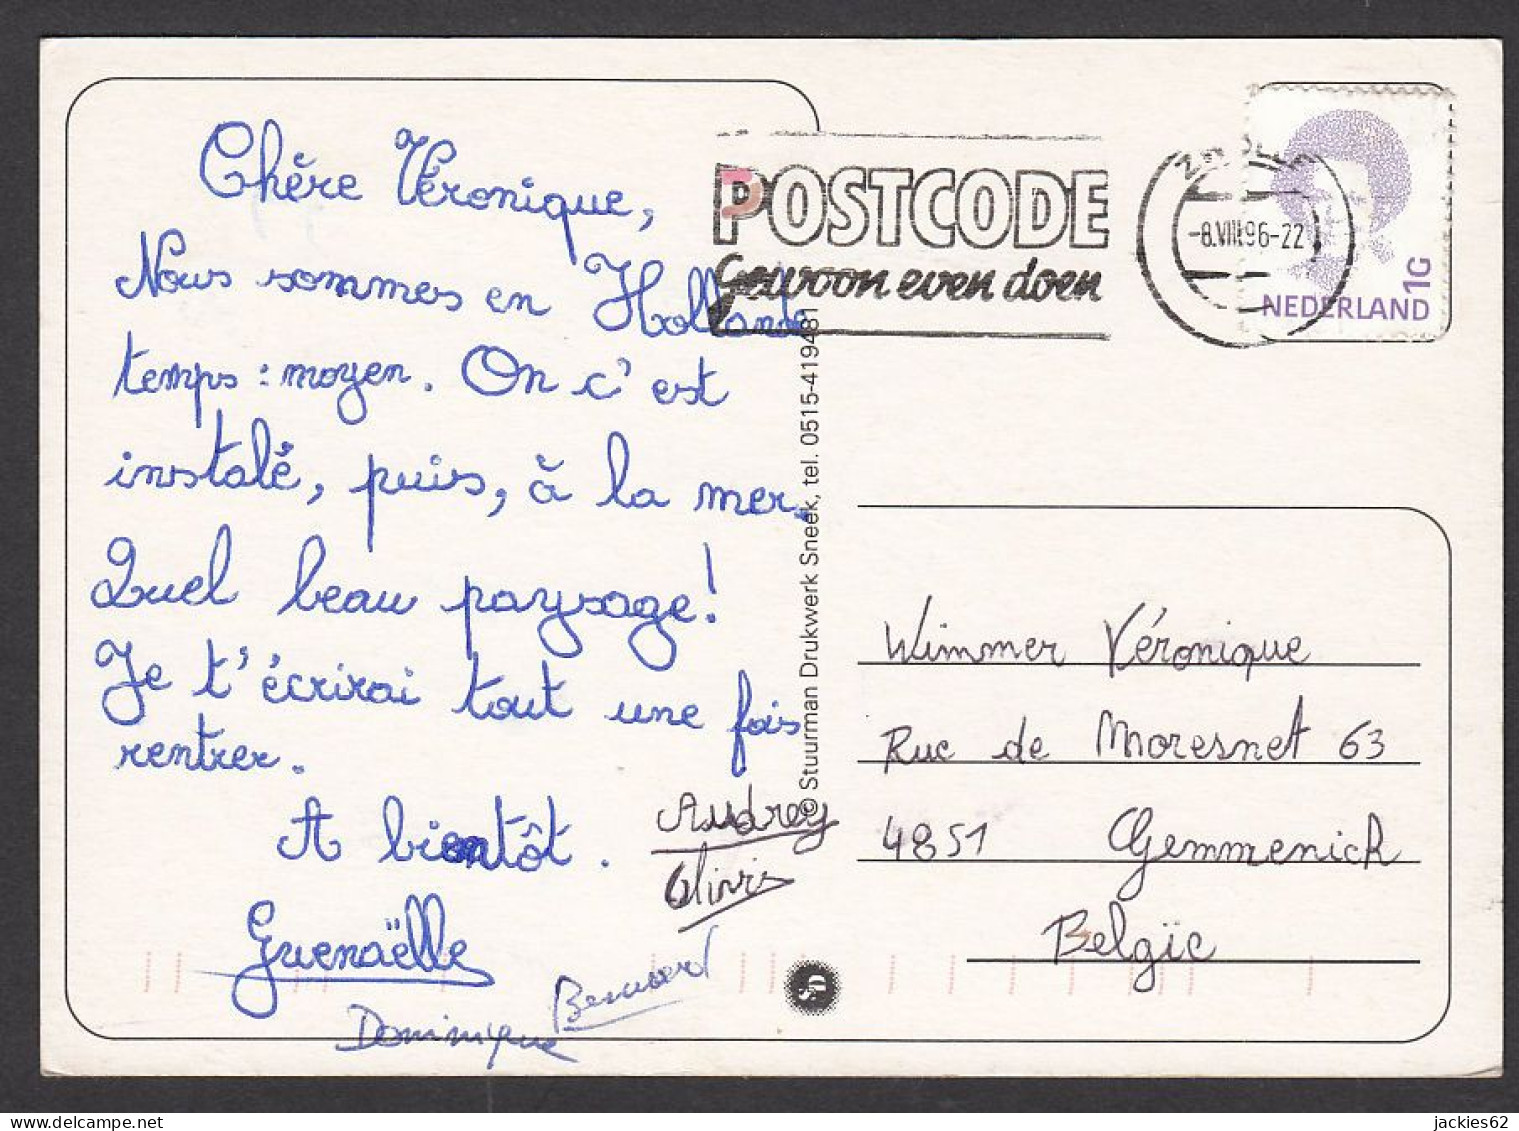 Chère Véronique,
Nous sommes en Hollande
temps : moyen. On c'est
instalé, puis, à la mer.
Quel beau paysage!
Je t'écrirai tout une fois
rentrer.
A bientôt.
Guenaëlle
Audrey
Olivier
Bernard
Dominique
POSTCODE
Gewoon even doen
ZWOLLE
-8.VIII.96-22
NEDERLAND
1G
© Stuurman Drukwerk Sneek, tel. 0515-419481
Wimmer Véronique
Rue de Moresnet 63
4851 Gemmenich
Belgïe
SD
jackies62